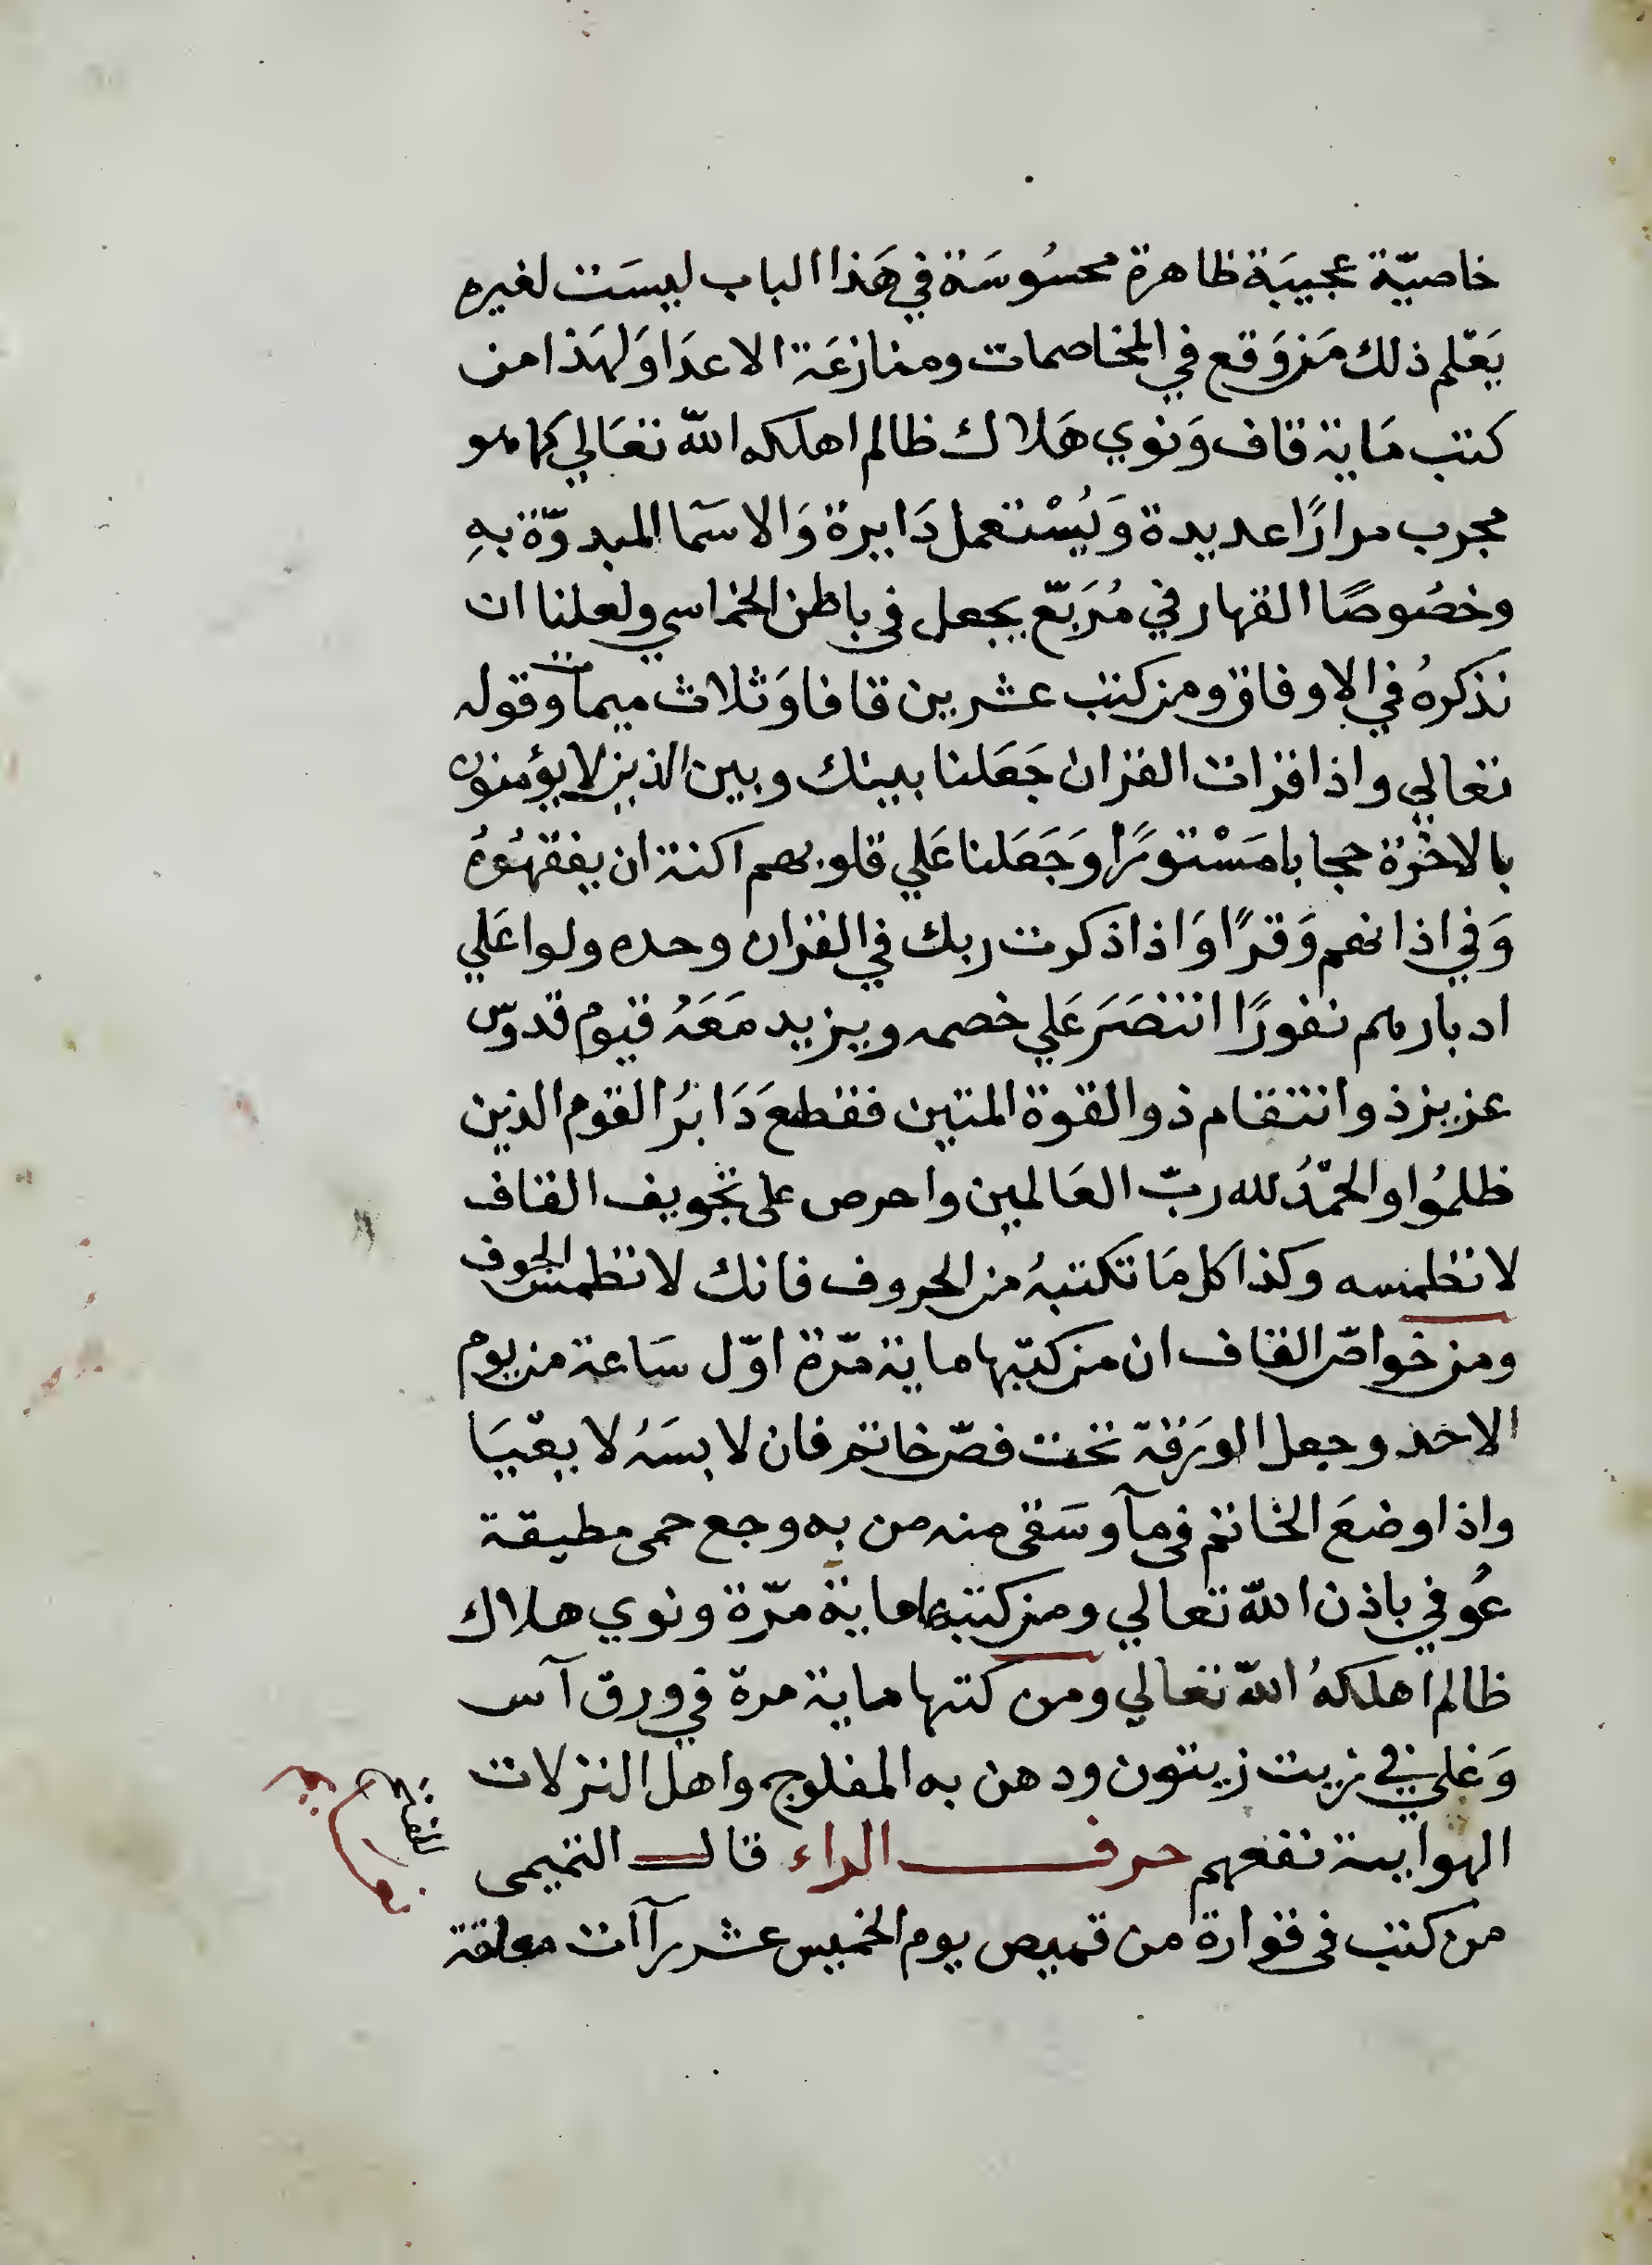 خاصيّة عجيبَة ظاهرة محسُوسَة في هَذا الباب ليسَت لغيره
يَعْلم ذلك مَن وَقع في المخاصمات ومنازعَة الاعدَا وَلهَذا من
كتب مَاية قاف وَنوي هَلاك ظالم اهلكه الله تعَالي كما هو
مجرب مرارًا عديدة وَيُسْتعمل دَايرة وَالاسمَا المبدوّة بهِ
وخصُوصًا القهار في مُرَبّع يجعل في باطن الخماسي ولعلنا ان
نذكرهُ في الاوفاق ومن كتب عشرين قافا وَثلاث ميمات وقوله
تعالي واذا قرات القران جَعَلنا بينك وبين الذين لا يؤمنون
بالاخرَة حجابا مَسْتورًا وَجَعَلنا عَلي قلوبهم اكنة ان يفقهُوهُ
وَفي اذانهم وَقرًا وَاذا ذكرت ربك في القران وحده ولوا عَلي
ادبارهم نفورًا انتصَرَ عَلي خصمه ويزيد مَعَهُ قيوم قدوس
عزيز ذو انتقام ذو القوة المتين فقطعَ دَابرُ القوم الذين
ظلمُوا والحمّدُ لله ربّ العَالمين واحرص على تجويف القاف
لا تطمسه وكذا كل مَا تكتبهُ من الحروف فانك لا تطمس الجوف
ومن خواصّ القاف ان من كتبها ماية مّرة اوّل سَاعة من يوم
الاحد وجعل الورَقة تحت فصّ خاتم فان لابسَهُ لا يعْيَا
واذا وضعَ الخاتم في مآ وسَقى منه من به وجع حمى مطبقة
عُوفي باذن الله تعالي ومن كتبها ماية مّرة ونوي هلاك
ظالم اهلكهُ الله تعالي ومن كتبها ماية مرة في ورق آس
وَغلي في زيت زيتون ودهن به المفلوج واهل النزلات
الهوايية نفعهم حرف الراء قال التميمى
من كتب فى قوارة من قميص يوم الخميس عشر راآت معلقة